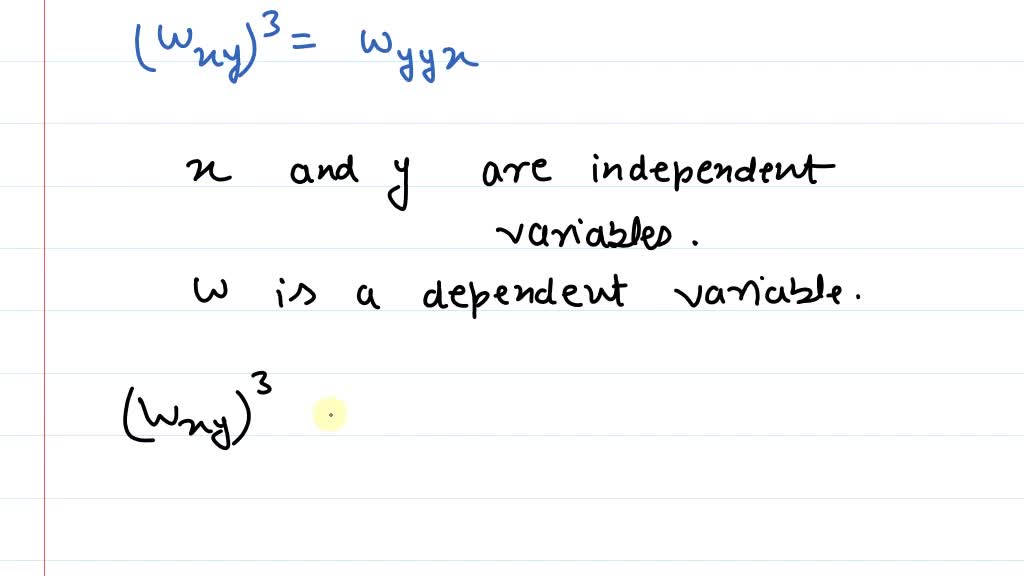 (w_xy)³ = w_yyx
x and y are independent
variables.
w is a dependent variable.
(w_xy)³